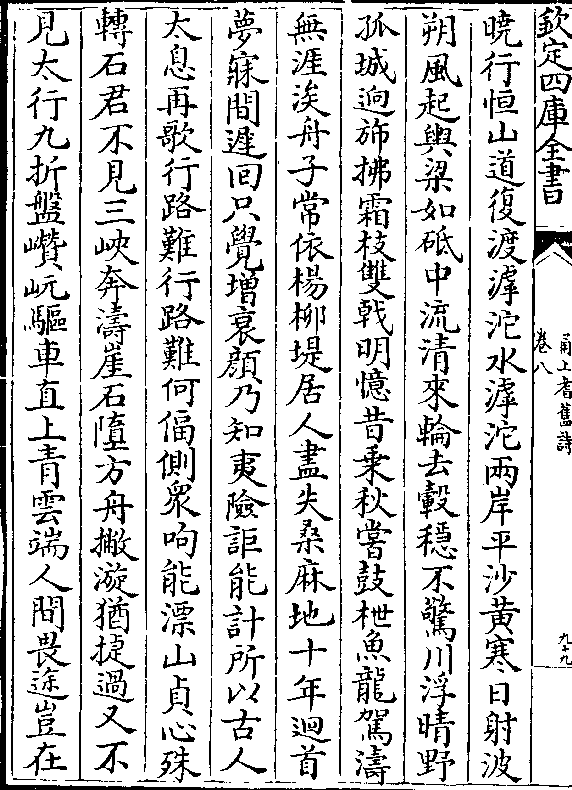 欽定四庫全書
甬上耆舊詩
卷八
九十九
曉行恒山道復渡滹沱水滹沱兩岸平沙黄寒日射波
朔風起輿梁如砥中流清來輪去轂穩不驚川浮晴野
孤城逈斾拂霜枝雙戟明憶昔乗秋嘗鼓枻魚龍駕濤
無涯涘舟子常依楊柳堤居人盡失桑麻地十年迴首
夢寐間遲回只覺增衰顔乃知夷險詎能計所以古人
太息再歌行路難行路難何偪側衆呴能漂山貞心殊
轉石君不見三峽奔濤崖石墮方舟撇漩猶捷過又不
見太行九折盤巑岏驅車直上青雲端人間畏途豈在